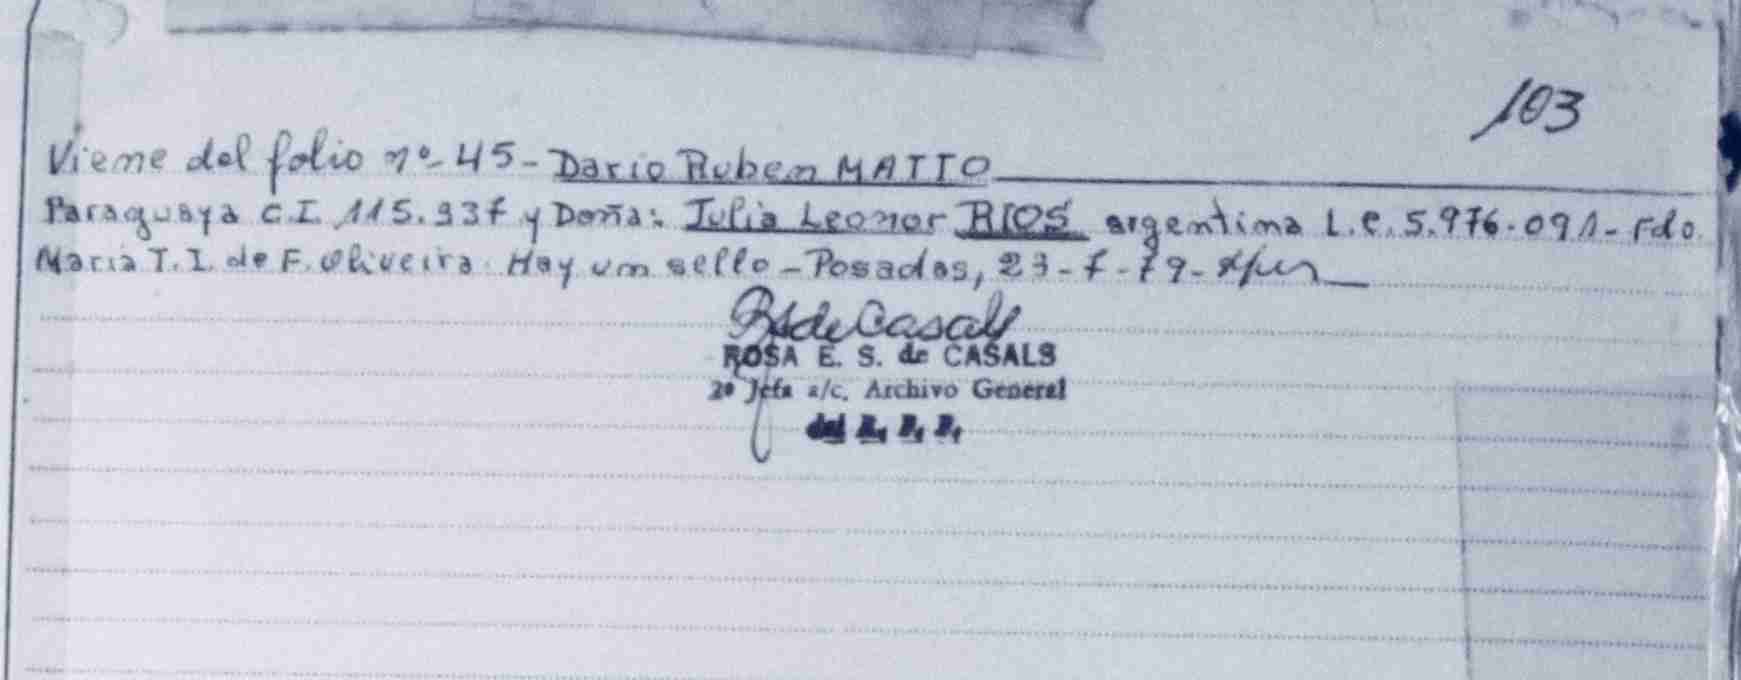 103
Viene del folio nº 45 - Dario Ruben MATTO
Paraguaya C.I. 115.937 y Doña: Julia Leonor RIOS argentina L.C. 5.976.091 - Fdo.
Maria T. I. de F. Oliveira. Hay un sello - Posadas, 23-7-79 -
RSdeCasals
ROSA E. S. de CASALS
2º Jefa a/c. Archivo General
del R. P. P.